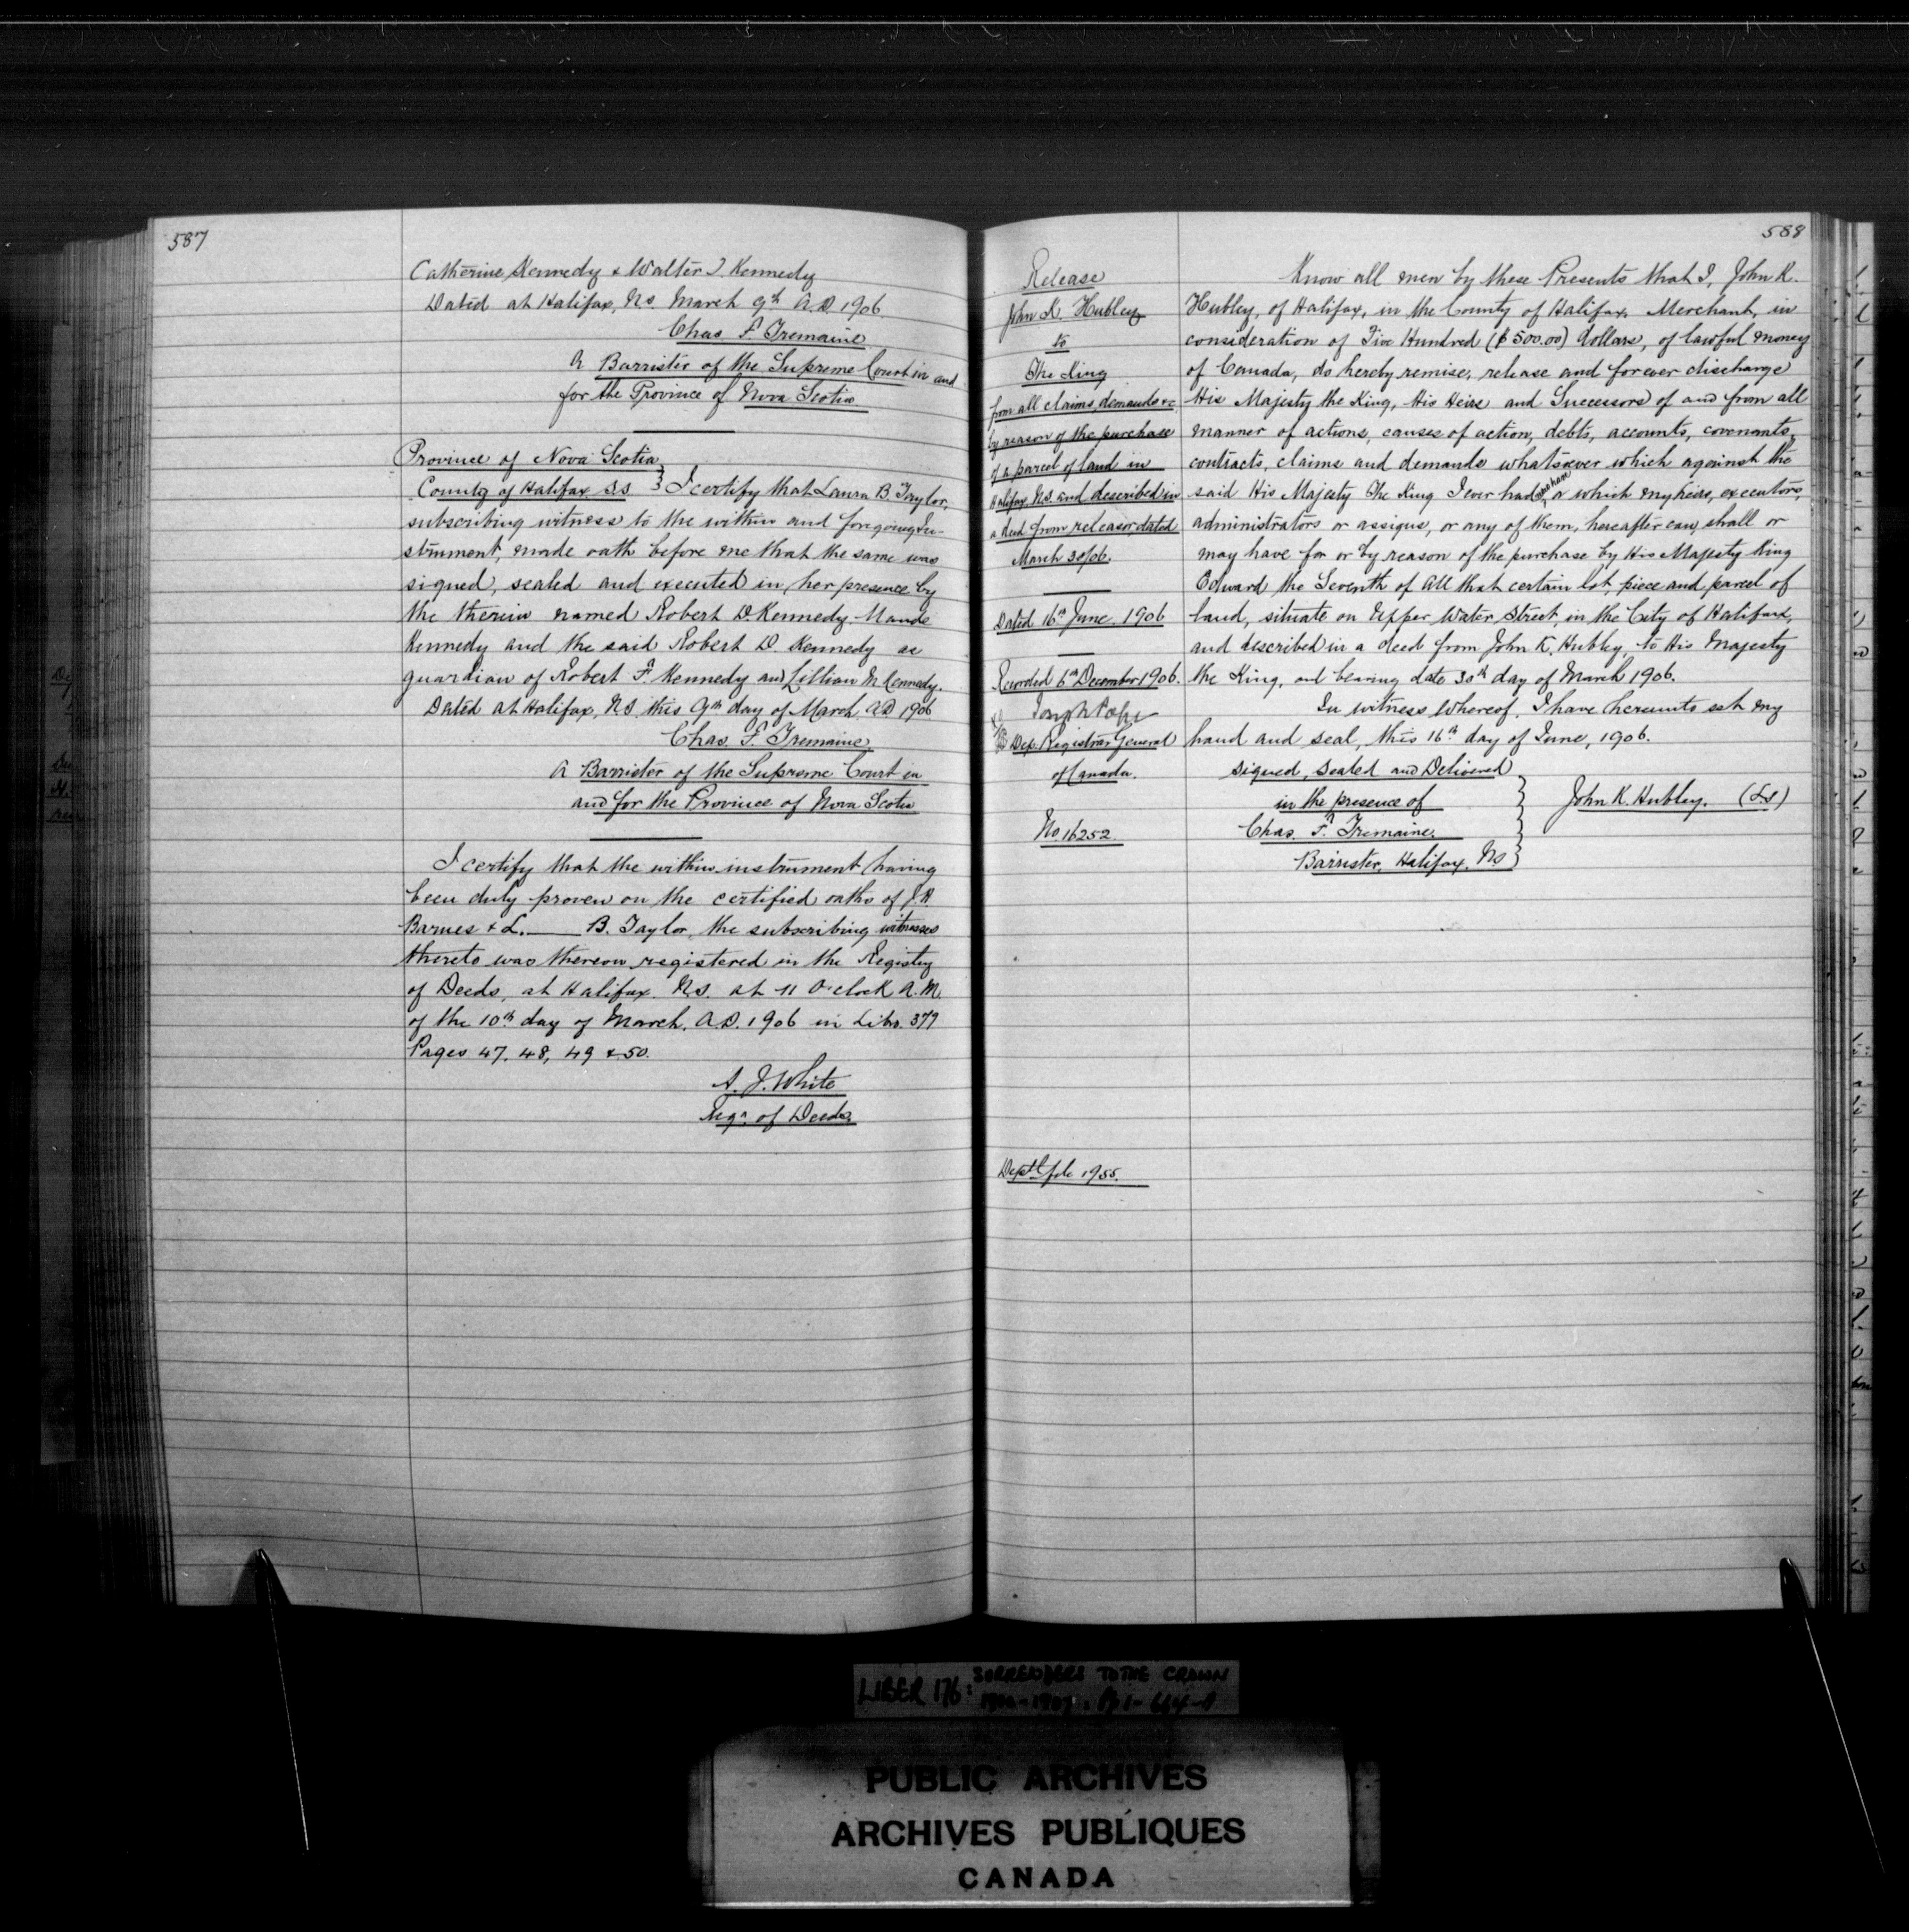 587
Catherine Kennedy & Walter J Kennedy
Dated at Halifax, N.S. March 9th A.D. 1906.
Chas. F. Tremaine
A Barrister of the Supreme Court in and
for the Province of Nova Scotia
Province of Nova Scotia
County of Halifax S.S } I certify that Laura B. Taylor,
subscribing witness to the within and foregoing In-
strument, made oath before me that the same was
signed, sealed and executed in her presence by
the therein named Robert D. Kennedy. Maude
Kennedy and the said Robert D. Kennedy as
guardian of Robert F. Kennedy and Lillian M Kennedy.
Dated at Halifax, N.S. this 9th day of March, A.D 1906
Chas. F. Tremaine
A Barrister of the Supreme Court in
and for the Province of Nova Scotia
I certify that the within instrument having
been duly proven on the certified oaths of J. H.
Barnes & L. B. Taylor, the subscribing witnesses
thereto was thereon registered in the Registry
of Deeds, at Halifax. N.S. at 11 O'clock A.M.
of the 10th day of March. A.D. 1906 in Libr. 379
Pages 47. 48, 49 & 50.
A. J. White
Regr. of Deeds.
588
Release
John K. Hubley
to
The King
from all claims, demands &c
by reason of the purchase
of a parcel of land in
Halifax, N.S. and described in
a deed from releasor, dated
March 30/06.
Dated 16th June. 1906
Recorded 6th December 1906.
Joseph Pope
Dep. Registrar General
of Canada.
No. 16252.
Deptl file 1955.
Know all men by these Presents that I, John K.
Hubley, of Halifax, in the County of Halifax, Merchant, in
consideration of Five Hundred ($500.00) dollars, of lawful money
of Canada, do hereby remise, release and forever discharge
His Majesty the King, His Heirs and Successors of and from all
manner of actions, causes of action, debts, accounts, covenants,
contracts, claims and demands whatsoever which against the
said His Majesty The King I ever had, or which my heirs, executors,
administrators or assigns, or any of them, hereafter can, shall or
may have for or by reason of the purchase by His Majesty King
Edward the Seventh of all that certain lot, piece and parcel of
land, situate on Upper Water Street, in the City of Halifax,
and described in a deed from John K. Hubley, to His Majesty
the King, and bearing date 30th day of March 1906.
In witness Whereof, I have hereunto set my
hand and seal, this 16th day of June, 1906.
Signed, Sealed and Delivered
in the presence of
Chas. F. Tremaine.
Barrister, Halifax. N.S
} John K. Hubley. (LS)
LIBER 176: SURRENDERS TO THE CROWN
PUBLIC ARCHIVES
ARCHIVES PUBLIQUES
CANADA